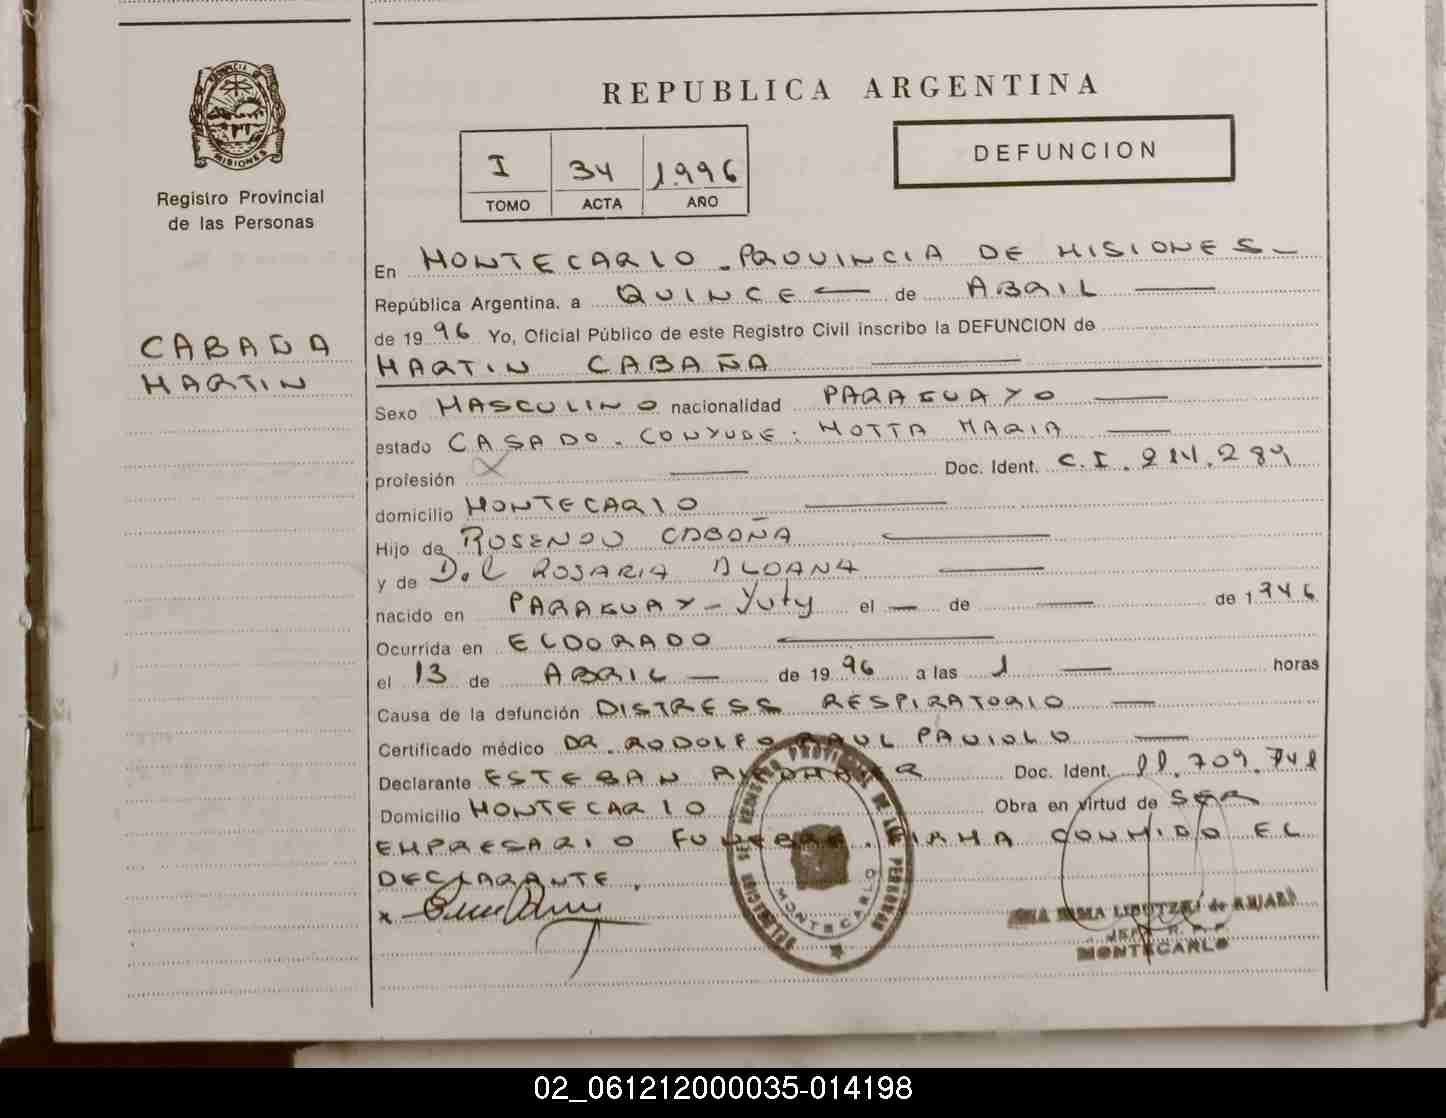 REPUBLICA ARGENTINA
PROVINCIA DE
MISIONES
Registro Provincial
de las Personas
I 34 1996
TOMO ACTA AÑO
DEFUNCION
CABAÑA
MARTIN
En MONTECARLO. PROVINCIA DE MISIONES
República Argentina, a QUINCE de ABRIL
de 19 96 Yo, Oficial Público de este Registro Civil inscribo la DEFUNCION de
MARTIN CABAÑA
Sexo MASCULINO nacionalidad PARAGUAYO
estado CASADO. CONYUGE: MOTTA MARIA
profesión Doc. Ident. C.I. 214.284
domicilio MONTECARLO
Hijo de CABAÑA
y de DEL ROSARIA
nacido en PARAGUAY - Yuty el — de — de 1946
Ocurrida en ELDORADO
el 13 de ABRIL de 19 96 a las 1 horas
Causa de la defunción DISTRESS RESPIRATORIO
Certificado médico DR. RODOLFO RAUL PAVIOLO
Declarante ESTEBAN Doc. Ident. 11.709.741
Domicilio MONTECARLO Obra en virtud de SER
EMPRESARIO FUNEBRE. FIRMA CONMIGO EL
DECLARANTE.
DELEGACION DEL REGISTRO PROVINCIAL DE LAS PERSONAS
MONTECARLO
IRMA LIBUTZKI de
JEFE R. P. P.
MONTECARLO
02_061212000035-014198